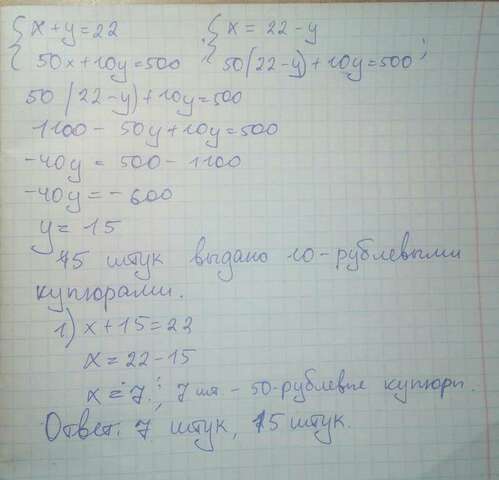 { x + y = 22 { x = 22 - y
{ 50x + 10y = 500 ; { 50(22 - y) + 10y = 500 ;
50(22 - y) + 10y = 500
1100 - 50y + 10y = 500
-40y = 500 - 1100
-40y = -600
y = 15
15 штук выдано 10-рублевыми
купюрами.
1) x + 15 = 22
x = 22 - 15
x = 7. ; 7 шт - 50-рублевые купюры.
Ответ: 7 штук, 15 штук.